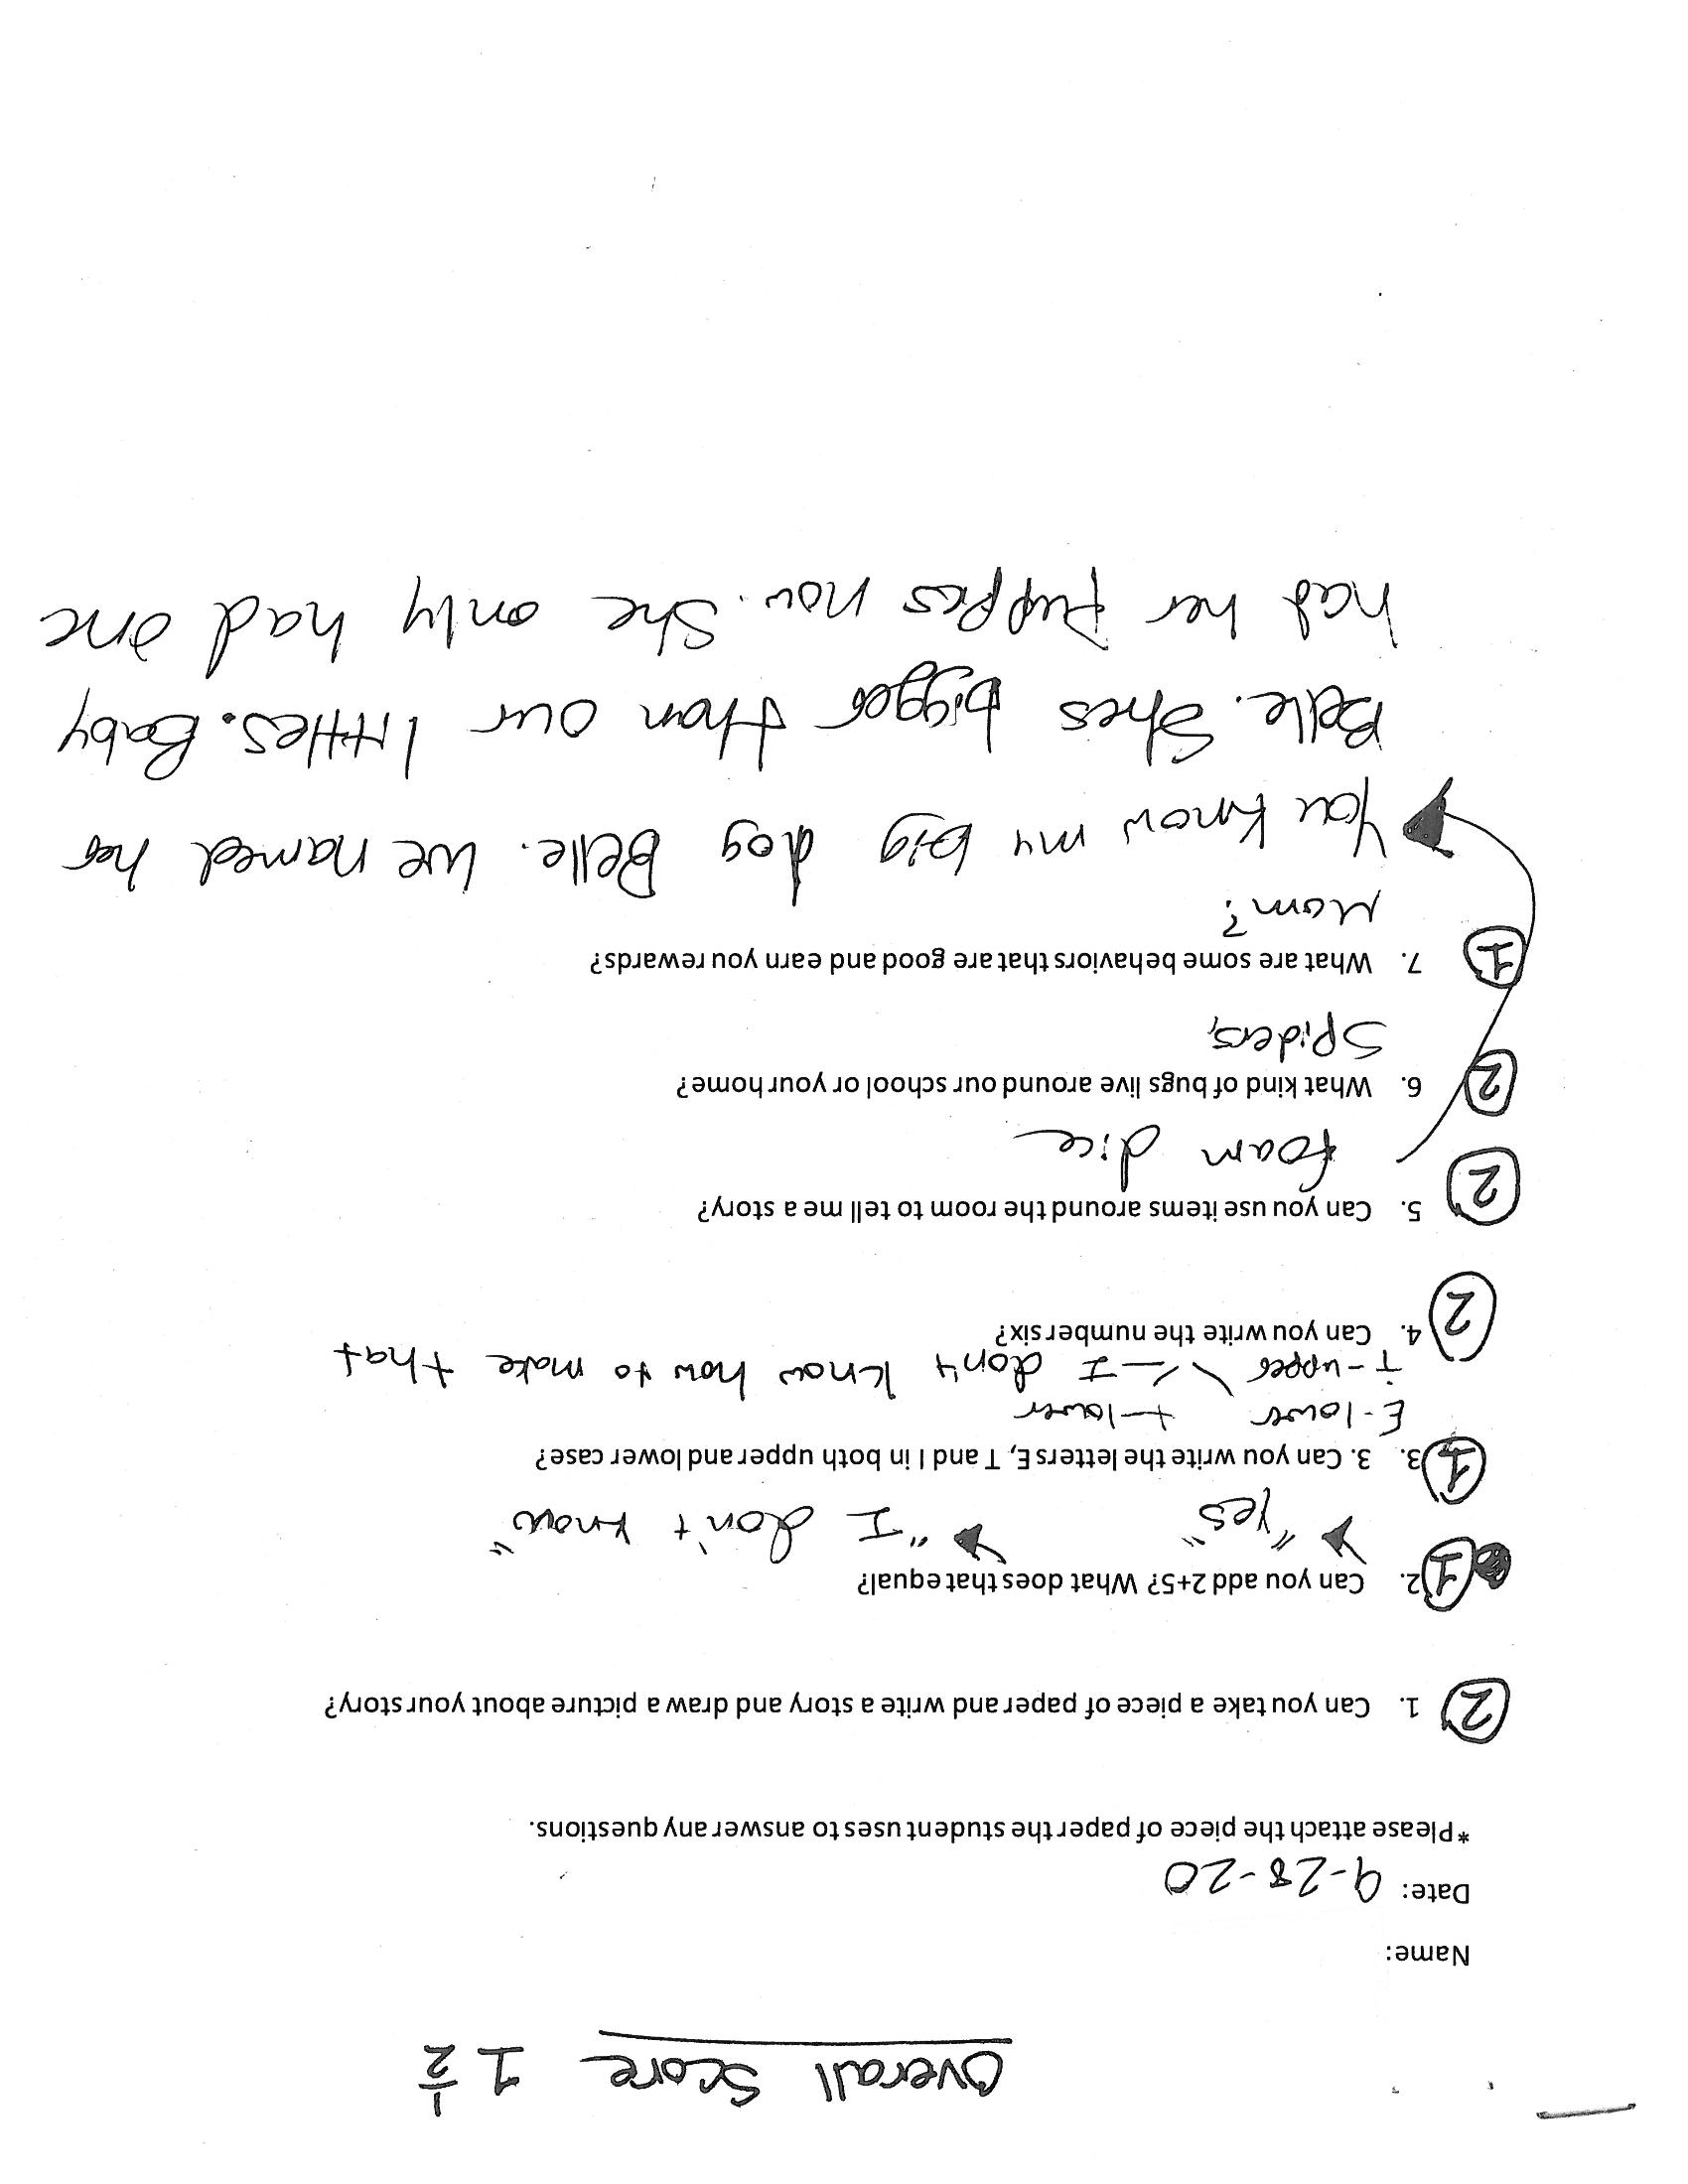 Overall Score 1 1/2
Name:
Date: 9-28-20
*Please attach the piece of paper the student uses to answer any questions.
2 1. Can you take a piece of paper and write a story and draw a picture about your story?
1 2. Can you add 2+5? What does that equal?
"Yes" "I don't know"
1 3. 3. Can you write the letters E, T and I in both upper and lower case?
E-lower t-lower
T-upper I don't know how to make that
2 4. Can you write the number six?
2 5. Can you use items around the room to tell me a story?
foam dice
2 6. What kind of bugs live around our school or your home?
Spiders,
1 7. What are some behaviors that are good and earn you rewards?
Mom?
You know my big dog Belle. We named her
Belle. Shes bigger than our littles. Baby
had her puppies now. She only had one